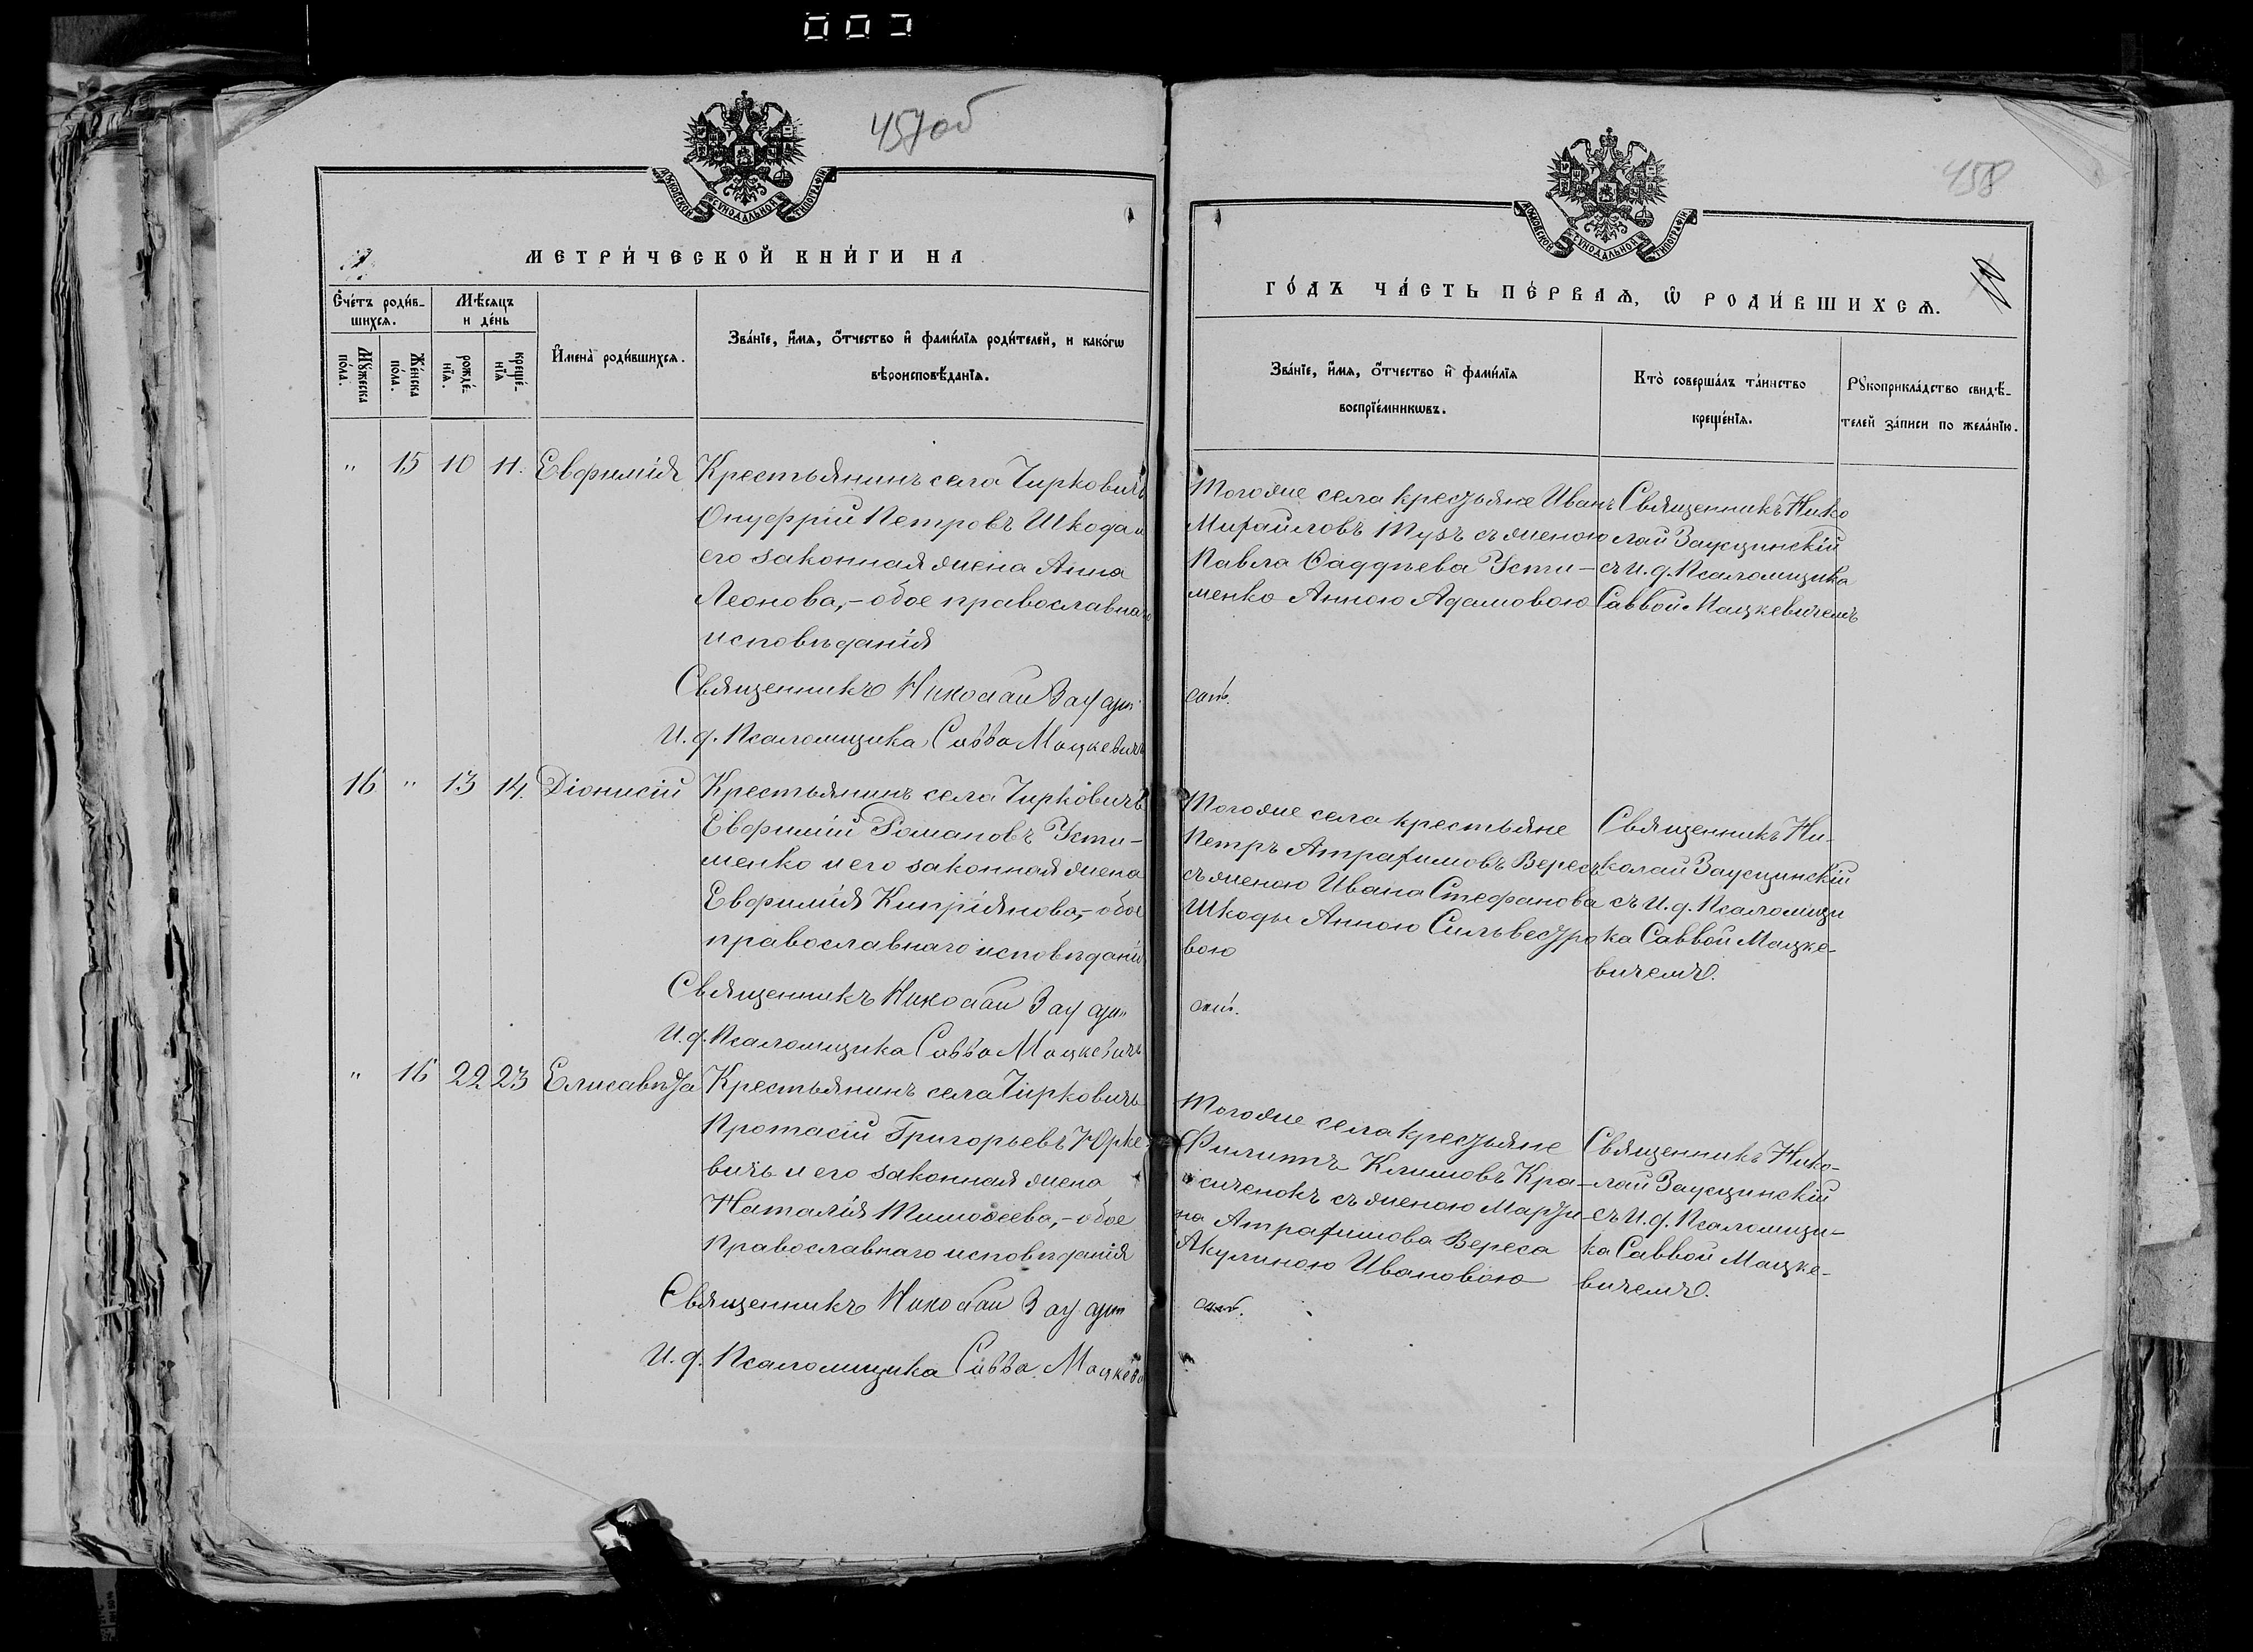 457об
МОСКОВСКОЙ СУНОДАЛЬНОЙ ТИПОГРАФІИ
МЕТРИ́ЧЕСКОЙ КНИ́ГИ НА
Сче́тъ роди́в-
шихся.
Мѣ́сяцъ
и де́нь
Му́жеска
по́ла.
Же́нска
по́ла.
рожде́-
нія.
креще́-
нія
Имена̀ роди́вшихся.
Зва́ніе, и́мя, о́тчество и фами́лія роди́телей, и како́гѡ
вѣроисповѣ́данія.
" 15 10 11. Евфимія Крестьянинъ села Чирковичъ
Онуфрій Петровъ Шкода и
его законная жена Анна
Леонова,- обое православнаго
исповѣданія
Священникъ Николай Заусцин
И. д. Псаломщика Савва Мацкевичъ
16 " 13 14. Діонисій Крестьянинъ села Чирковичъ
Евфимій Романовъ Усти-
менко и его законная жена
Евфимія Кипріянова,- обое
православнаго исповѣданія
Священникъ Николай Заусцин
И. д. Псаломщика Савва Мацкевичъ
" 16 22 23 Елисавѣта Крестьянинъ села Чирковичъ
Протасій Григорьевъ Юрке
вичъ и его законная жена
Наталія Тимоѳеева,- обое
православнаго исповѣданія
Священникъ Николай Заусцин
И. д. Псаломщика Савва Мацкеви
458
МОСКОВСКОЙ СУНОДАЛЬНОЙ ТИПОГРАФІИ
10
ГО́ДЪ ЧА́СТЬ ПЕ́РВАЯ, Ѡ РОДИ́ВШИХСЯ.
Зва́ніе, и́мя, о́тчество и фами́лія
воспріе́мникѡвъ.
Кто̀ соверша́лъ та́инство
креще́нія.
Рукоприкла́дство свидѣ́-
телей за́писи по жела́нію.
Тогоже села крестьяне Иванъ
Михайловъ Тузъ съ женою
Павла Фаддѣева Усти-
менко Анною Адамовою
Священникъ Нико
лай Заусцинскій
съ И. д. Псаломщика
Саввой Мацкевичемъ
скій.
Тогоже села крестьяне
Петръ Атрахимовъ Вересъ
съ женою Ивана Стефанова
Шкоды Анною Сильвестро
вою
Священникъ Ни-
колай Заусцинскій
съ И. д. Псаломщи
ка Саввой Мацке-
вичемъ.
скій.
Тогоже села крестьяне
Филиппъ Климовъ Кра-
сиченокъ съ женою Марти-
на Атрахимова Вереса
Акулиною Ивановою
Священникъ Нико-
лай Заусцинскій
съ И. д. Псаломщи-
ка Саввой Мацке-
вичемъ.
скій.